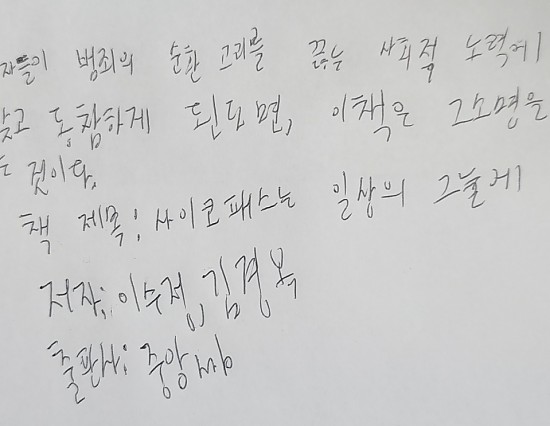 자들이 범죄의 순환 고리를 끊는 사회적 노력에
갖고 동참하게 된다면, 이책은 그소명을
는 것이다.
책 제목: 사이코패스는 일상의 그늘에
저자: 이수정, 김경옥
출판사: 중앙m&b